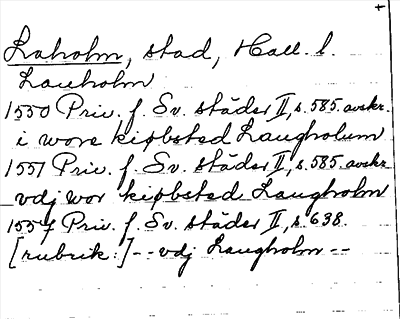 +
Laholm, stad, Hall. l.
Lauholm
1550 Priv. f. Sv. städer II, s. 585. avskr.
i wore kiøbsted Laugholum
1551 Priv. f. Sv. städer II, s. 585. avskr
vdj wor kiøbsted Laugholm
1557 Priv. f. Sv. städer II, s. 638.
[rubrik:] -- vdj Laugholm --